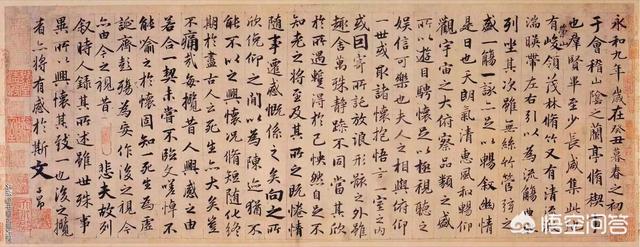 永和九年歲在癸丑暮春之初
于會稽山陰之蘭亭脩稧
也羣賢畢至少長咸集此
有崇山峻領茂林脩竹又有清流
湍暎帶左右引以為流觴
列坐其次雖無絲竹管弦之
盛一觴一詠亦足以暢叙幽情
是日也天朗氣清惠風和暢仰
觀宇宙之大俯察品類之盛
所以遊目騁懷足以極視聽之
娛信可樂也夫人之相與俯仰
一世或取諸懷抱悟言一室之內
或因寄所託放浪形骸之外雖
趣舍萬殊靜躁不同當其欣
於所遇暫得於己怏然自足不
知老之將至及其所之既惓情
隨事遷感慨係之矣向之所
欣俛仰之間以為陳迹猶不
能不以之興懷況脩短隨化終
期於盡古人云死生亦大矣豈
不痛哉每攬昔人興感之由
若合一契未嘗不臨文嗟悼不
能喻之於懷固知一死生為虛
誕齊彭殤為妄作後之視今
亦由今之視昔 悲夫故列
叙時人錄其所述雖世殊事
異所以興懷其致一也後之攬
者亦將有感於斯文
子昂
悟空问答